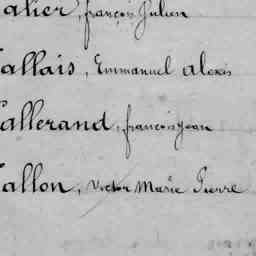 alier, françois Julien
allais, Emmanuel alexis
allerand, françois Jean
allon, Victor Marie Pierre